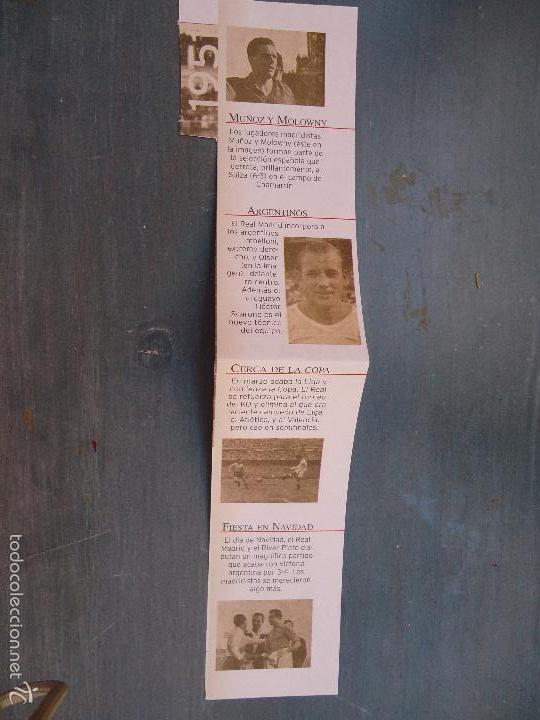 1951
MUÑOZ Y MOLOWNY
Los jugadores madridistas
Muñoz y Molowny (éste en
la imagen) forman parte de
la selección española que
derrota, brillantemente, a
Suiza (6-3) en el campo de
Chamartín.
ARGENTINOS
El Real Madrid incorpora a
los argentinos
Imbelloni,
extremo dere-
cho, y Olsen
(en la ima-
gen), delante-
ro centro.
Además el
uruguayo
Héctor
Scarone es el
nuevo técnico
del equipo.
CERCA DE LA COPA
En marzo acaba la Liga y
comienza la Copa. El Real
se refuerza para el torneo
del KO y elimina al que era
reciente campeón de Liga,
el Atlético, y al Valencia,
pero cae en semifinales.
FIESTA EN NAVIDAD
El día de Navidad, el Real
Madrid y el River Plate dis-
putan un magnífico partido
que acaba con victoria
argentina por 3-4. Los
madridistas se merecieron
algo más.
todocoleccion.net